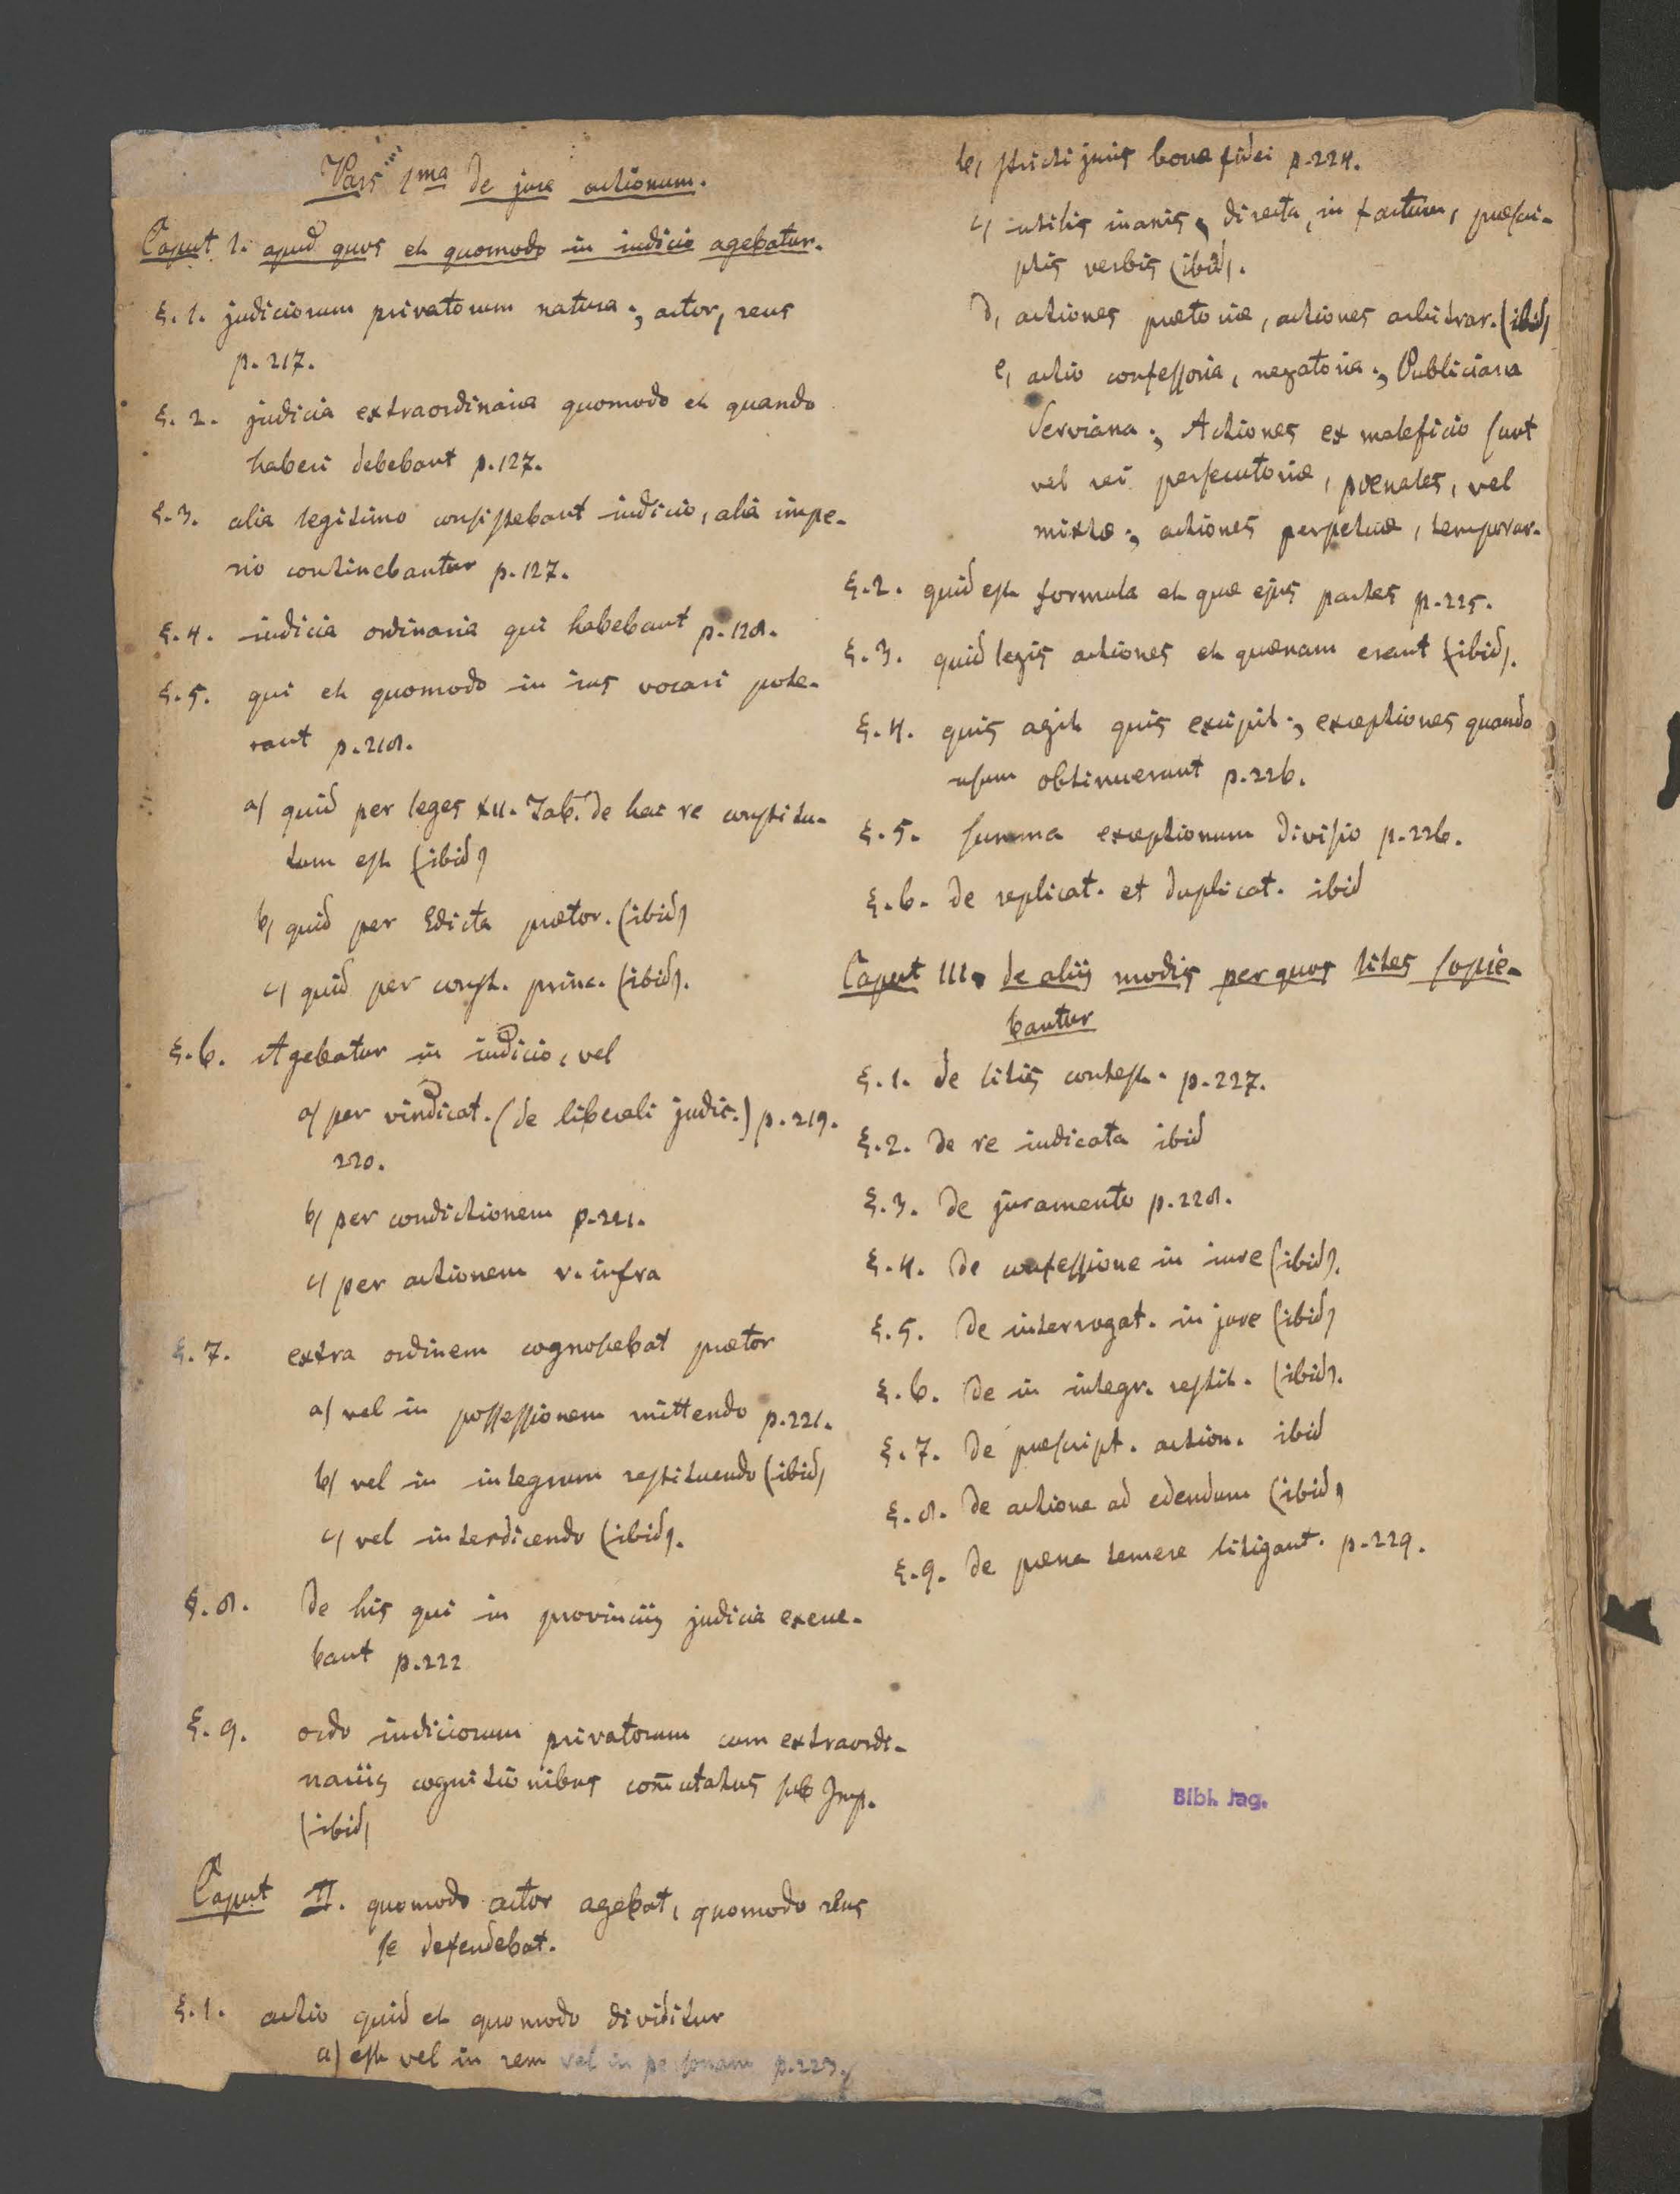 Pars 1ma de jure actionum.
Caput 1. apud quos et quomodo in iudicio agebatur.
§. 1. judiciorum privatorum natura; actor, reus
p. 217.
§. 2. judicia extraordinaria quomodo et quando
haberi debebant p. 127.
§. 3. alia legitimo consistebant iudicio, alia impe-
rio continebantur p. 127.
§. 4. iudicia ordinaria qui habebant p. 128.
§. 5. qui et quomodo in ius vocari pote-
rant p. 218.
a) quid per leges XII. Tab. de hac re constitu-
tum est (ibid)
b) quid per Edicta praetor. (ibid)
c) quid per const. princ. (ibid).
§. 6. Agebatur in iudicio, vel
a) per vindicat. (de liberali judic.) p. 219.
220.
b) per condictionem p. 221.
c) per actionem v. infra
§. 7. extra ordinem cognoscebat praetor
a) vel in possessionem mittendo p. 221.
b) vel in integrum restituendo (ibid)
c) vel interdicendo (ibid).
§. 8. de his qui in provinciis judicia exerce-
bant p. 222
§. 9. ordo iudiciorum privatorum cum extraordi-
nariis cognitionibus com̄utatus sub Imp.
(ibid)
Caput II. quomodo actor agebat, quomodo reus
se defendebat.
§. 1. actio quid et quomodo dividitur
a) est vel in rem vel in personam p. 223.
b) stricti juris bonae fidei p. 224.
c) utilis inanis, directa, in factum, praescri-
ptis verbis (ibid).
d) actiones praetoriae, actiones arbitrar. (ibid)
e) actio confessoria, negatoria; Publiciana
Serviana; Actiones ex maleficio sunt
vel rei persecutoriae, poenales, vel
mixtae; actiones perpetuae, temporar.
§. 2. quid est formula et quae ejus partes p. 225.
§. 3. quid legis actiones et quaenam erant (ibid).
§. 4. quis agit quis excipit; exceptiones quando
usum obtinuerunt p. 226.
§. 5. summa exceptionum divisio p. 226.
§. 6. de replicat. et duplicat. ibid
Caput III. de aliis modis per quos lites sopie-
bantur
§. 1. de litis contest. p. 227.
§. 2. de re iudicata ibid
§. 3. de juramento p. 228.
§. 4. de confessione in iure (ibid).
§. 5. de interrogat. in jure (ibid)
§. 6. de in integr. restit. (ibid).
§. 7. de praescript. action. ibid
§. 8. de actione ad edendum (ibid)
§. 9. de poena temere litigant. p. 229.
Bibl. Jag.